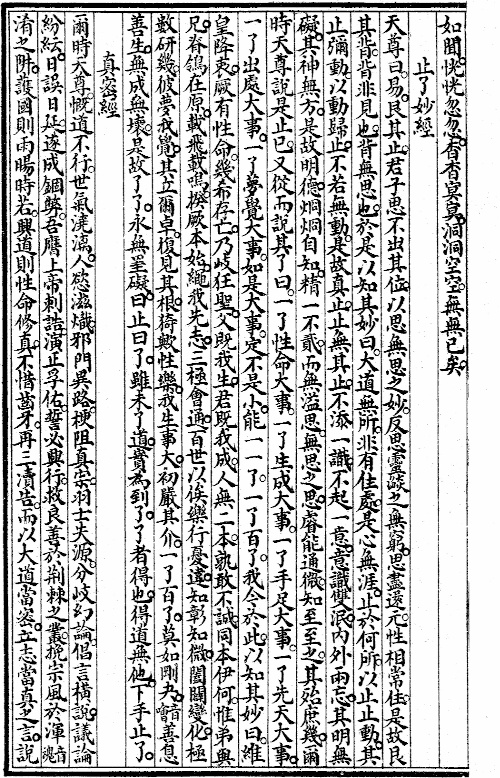 如聞恍恍忽忽杳杳冥冥洞洞空空無無已矣
止了妙經
天尊曰易艮其止君子思不出其位以思無思之妙反思靈燄之無窮思盡還元性相常住是故艮
其背背非見也背無思也於是以知其妙曰大道無所非有住處是心無涯止於何所以止止動其
止彌動以動歸止不若無動是故真止止無其止不添一識不起一意意識雙泯內外兩忘其明無
礙其神無方是故明德烱烱自知精一不貳而無溢思無思之思睿能通微知至至之其殆庶幾爾
時天尊說是止已又從而說其了曰一了性命大事一了生成大事一了手足大事一了先天大事
一了出處大事一了夢覺大事如是大事定不是小能一一了一了百了我今於此以知其妙曰維
皇降衷厥有性命幾希存亡乃岐狂聖父既我生君既我成人無二本孰敢不誠同本伊何惟弟與
兄脊鴒在原載飛載鳴揆厥本始繩我先志三極會通百世以俟樂行憂違知彰知微闔闢變化極
數研幾彼夢我覺其立爾卓復見其根猗歟性樂我生事大初嚴其介一了百了莫如剛夬音噲善息
善生無成無壞是故了了永無罣礙曰止曰了雖未了道實為到了了者得也得道無他下手止了
真密經
爾時天尊慨道不行世氣澆漓人慾滋熾邪門異路梗阻真宗羽士夫源分岐幻論倡言橫說議論
紛紜日誤日延遂成錮弊吾曆上帝剌誥演正孚佑誓必興行救良善於荊棘之叢挽宗風於渾音魂
淆之耼護國則雨暘時若興道則性命修真不惜齒牙再三瀆告而以大道當密立志當真之言說